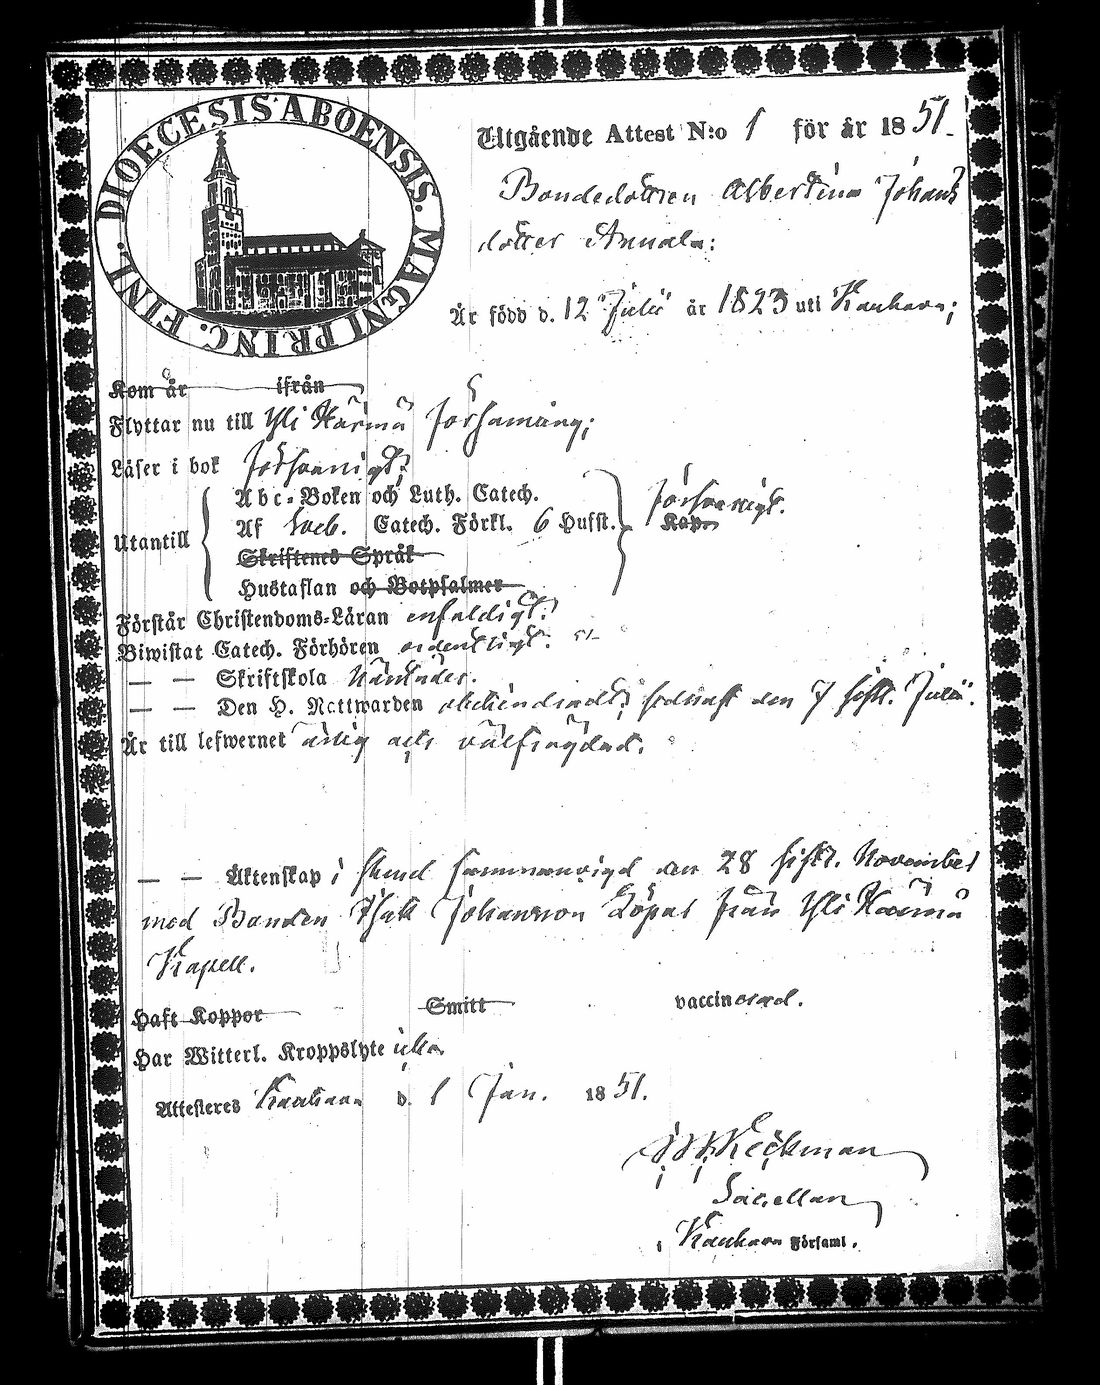 DIOECESIS ABOENSIS. MAGNI PRINC. FINL.
Utgående Attest N:o 1 för år 1851.
Bondedottren Albertina Johans
dotter Annala:
Är född d. 12 Julii år 1823 uti Kauhava;
Kom år ifrån
Flyttar nu till Yli Härmä församling;
Läser i bok försvarligt;
Abc-Boken och Luth. Catech.
Utantill
Af Sveb. Catech. Förkl. 6 Hufst. Kap. försvarligt.
Skriftenes Språk
Hustaflan och Botpsalmer
Förstår Christendoms-Läran enfaldigt:
Biwistat Catech. Förhören ordentligt:
— — Skriftskola
— — Den H. Nattwarden sednast den 7 sistl. Julii.
Är till lefwernet ärlig och välfrägdad.
— — Äktenskap i stånd sammanvigd den 28 sistl. November
med Bonden Isak Johansson från Yli Härmä
Kapell.
Haft Koppor Smitt vaccinerad.
Har Witterl. Kroppslyte icke.
Attesteras Kauhava d. 1 Jan. 1851.
Keckman
Sacellan
i Kauhava Församl.